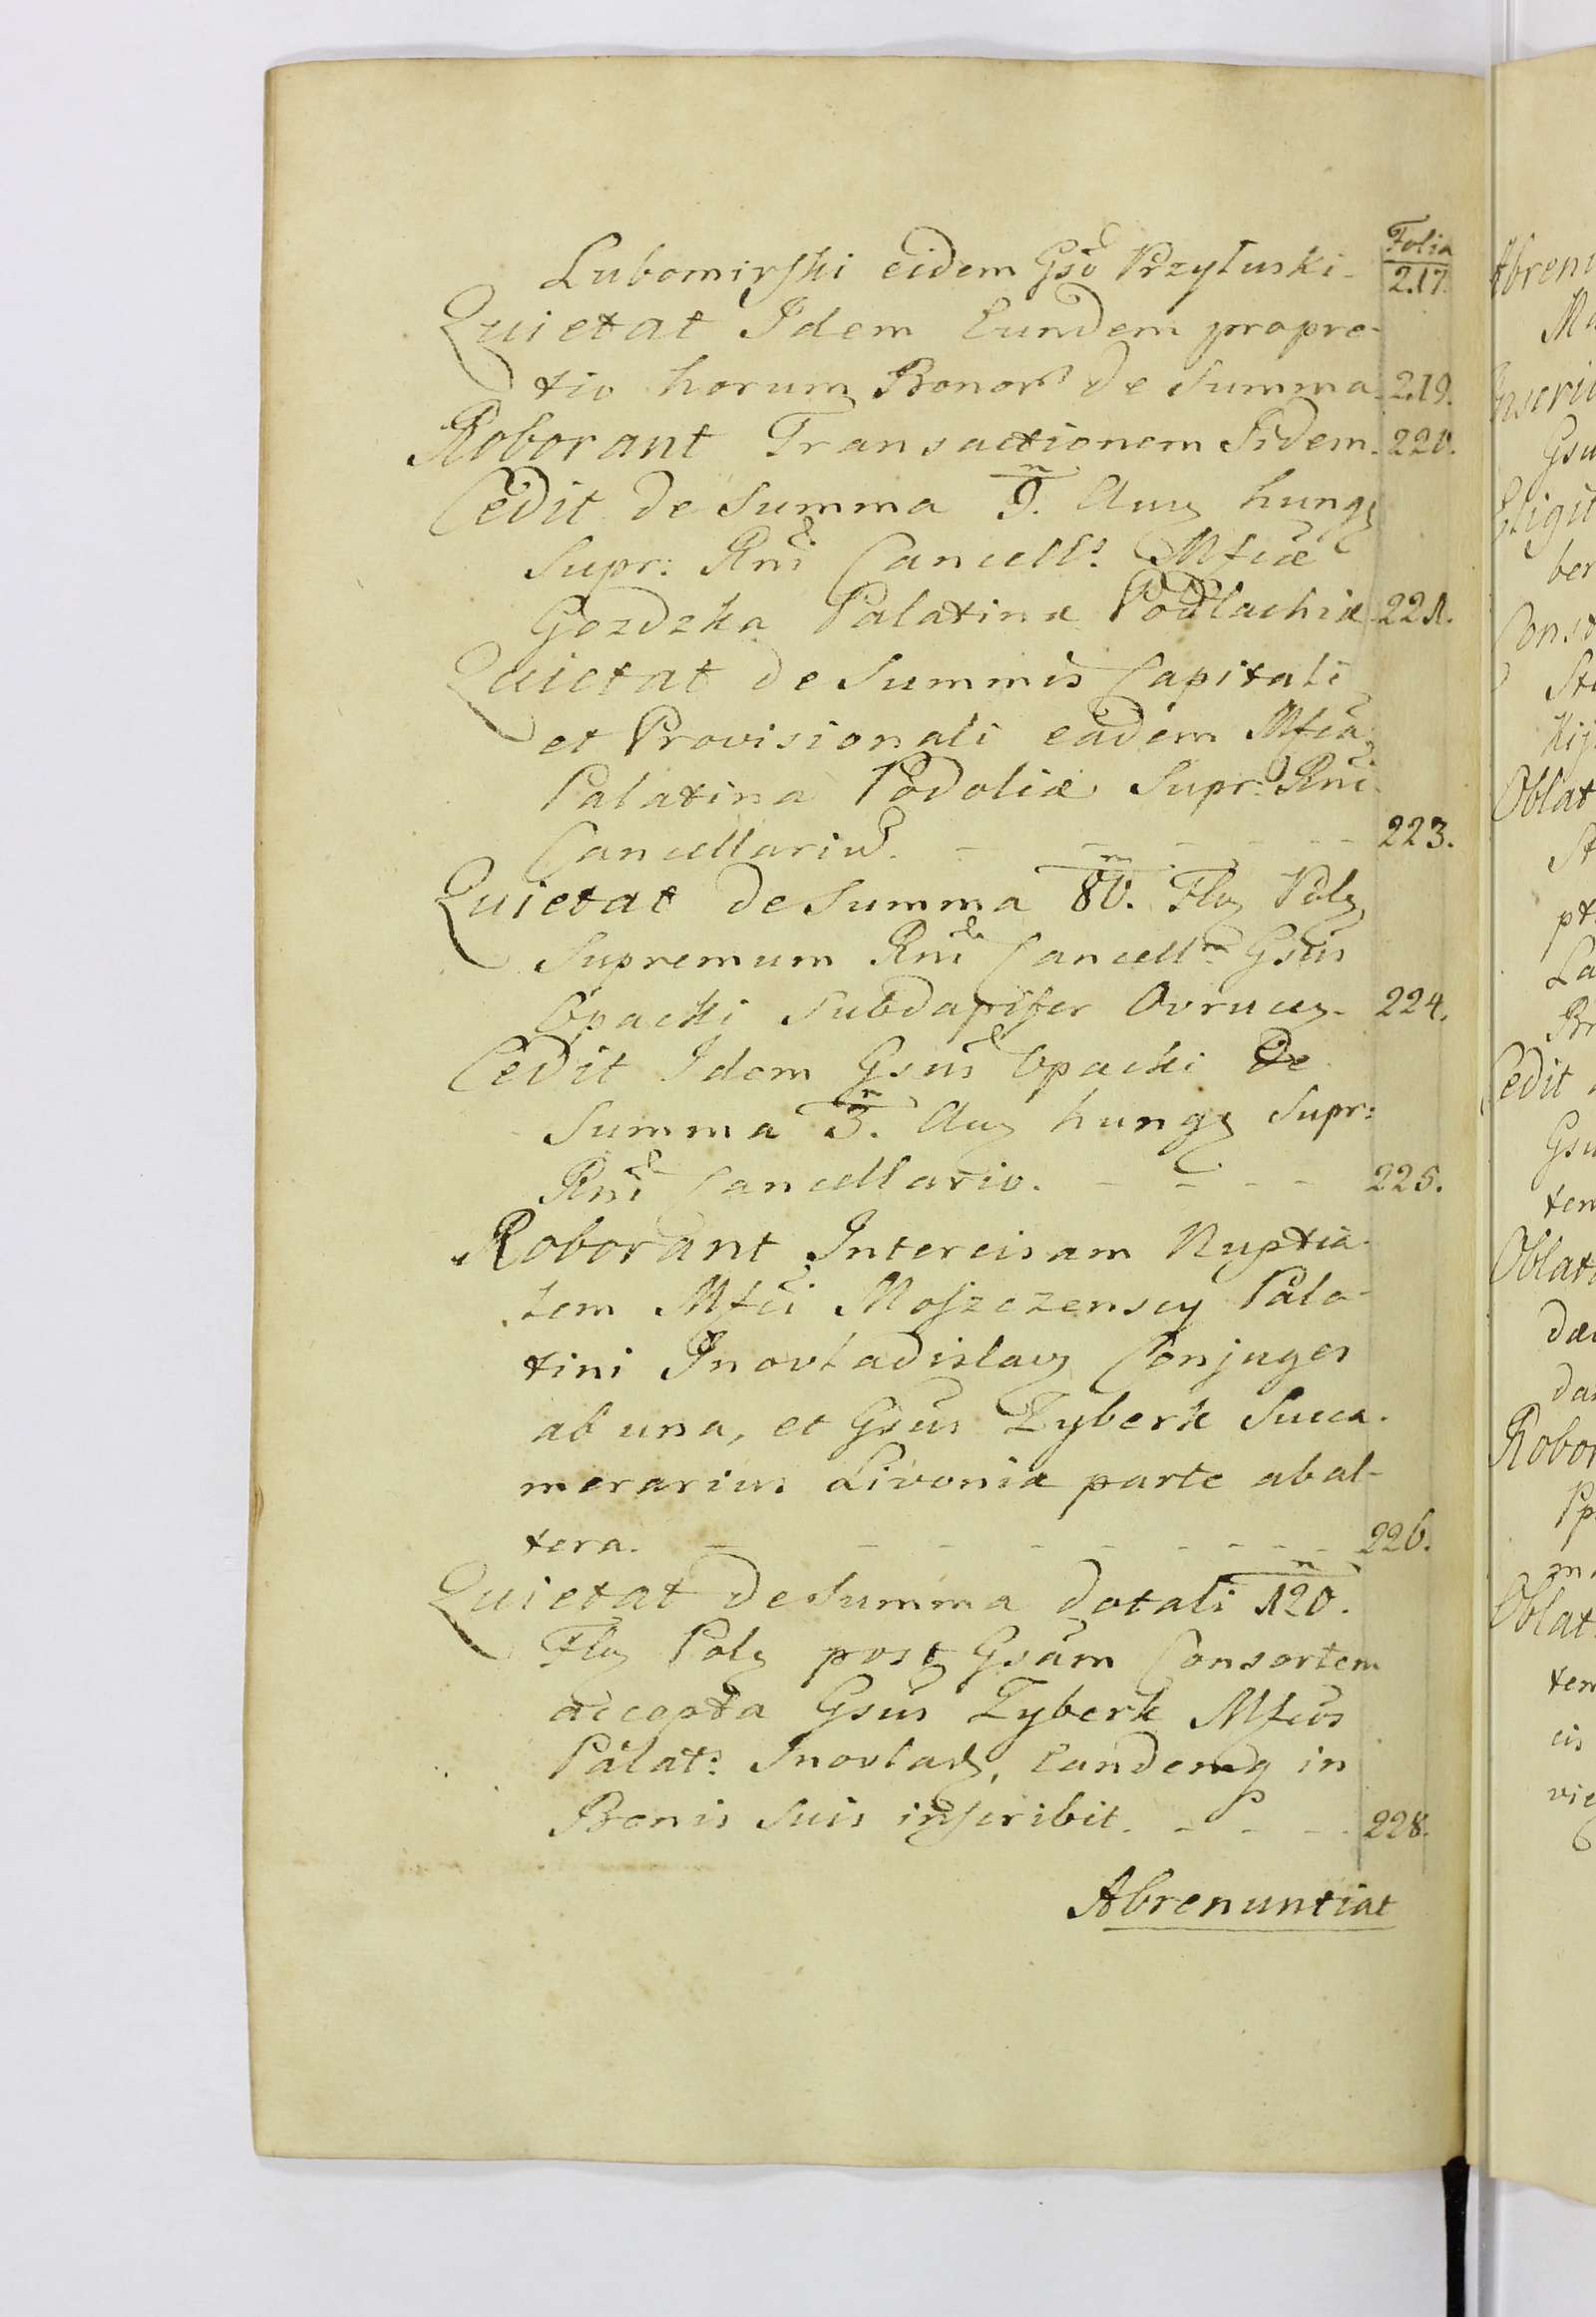 Folia
Lubomirski eidem Gsō Przyłuski - 217.
Quietat Idem Eundem propre-
tio horum Bonor de Summa. 219.
Roborant Transactionem Iidem. 220.
Cedit de Summa 9. Aur hung
Supr: Rni Cancell: Mfcæ
Gozdzka Palatinæ Podlachiæ 221.
Quietat de Summis Capitali
et Provisionali eadem Mfca
Palatina Podoliæ Supr: Rni
Cancellariū. - - - - - - 223.
Quietat de Summa 80. Flor Pol
Supremum Rni Cancell: Gsus
Opacki Subdapifer Ovruce. 224.
Cedit Idem Gsus Opacki de
Summa 3. Aur hung Supr:
Rni Cancellario. - - - - 225.
Roborant Intercisam Nuptia-
lem Mfci Moszczenscy Pala-
tini Inovladislav Conjuges
ab una, et Gsus Zyberk Succa-
merarius Livoniæ parte abal-
tera. - - - - - - - - - 226.
Quietat de Summa dotali 120.
Flor Pol post Gsam Consortem
accepta Gsus Zyberk Mfcus
Palat: Inovlad, Eandemq in
Bonis Suis inscribit. - - - - 228.
Abrenuntiat
Abrenu
Inscri
Gsu
ber
Oblat
pt
La
Cedit
Gsu
tem
Oblat
Robor
Oblat
tem
cis